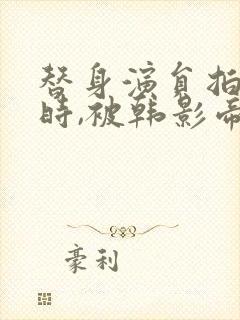 替身演員拍
時,被韩影帝
豪利